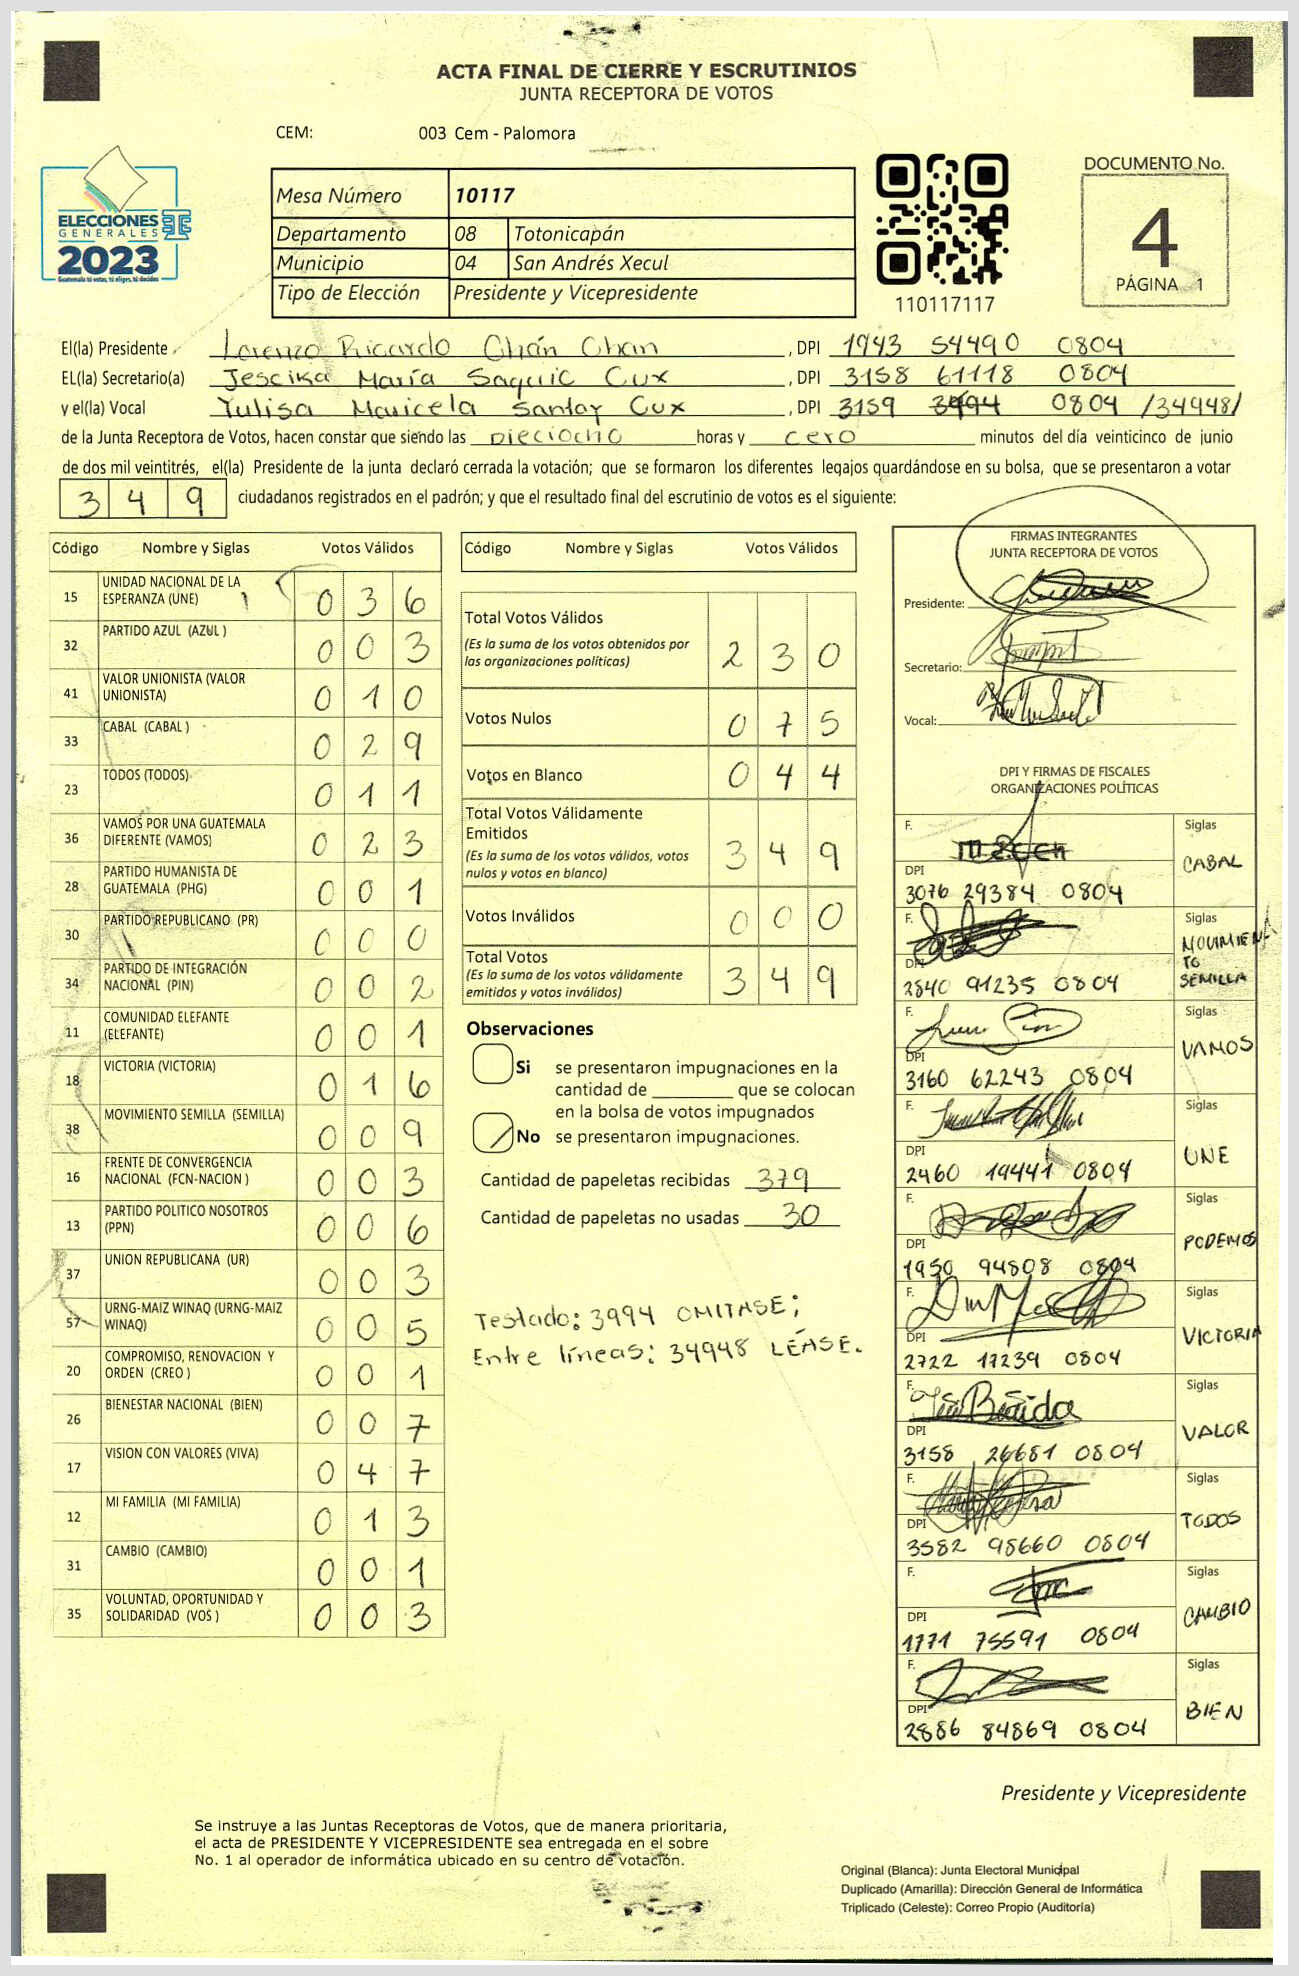 ACTA FINAL DE CIERRE Y ESCRUTINIOS
JUNTA RECEPTORA DE VOTOS
CEM: 003 Cem - Palomora
ELECCIONES
GENERALES
2023
Guatemala tú votas, tú eliges, tú decides
Mesa Número 10117
Departamento 08 Totonicapán
Municipio 04 San Andrés Xecul
Tipo de Elección Presidente y Vicepresidente
110117117
DOCUMENTO No.
4
PÁGINA 1
El(la) Presidente Lorenzo Ricardo Chán Chan , DPI 1943 54490 0804
EL(la) Secretario(a) Jescika María Saquic Cux , DPI 3158 61118 0804
y el(la) Vocal Yulisa Maricela Santay Cux , DPI 3159 3994 0804 /34948/
de la Junta Receptora de Votos, hacen constar que siendo las Dieciocho horas y cero minutos del día veinticinco de junio
de dos mil veintitrés, el(la) Presidente de la junta declaró cerrada la votación; que se formaron los diferentes legajos quardándose en su bolsa, que se presentaron a votar
349 ciudadanos registrados en el padrón; y que el resultado final del escrutinio de votos es el siguiente:
Código Nombre y Siglas Votos Válidos
15 UNIDAD NACIONAL DE LA ESPERANZA (UNE) 0 3 6
32 PARTIDO AZUL (AZUL ) 0 0 3
41 VALOR UNIONISTA (VALOR UNIONISTA) 0 1 0
33 CABAL (CABAL ) 0 2 9
23 TODOS (TODOS) 0 1 1
36 VAMOS POR UNA GUATEMALA DIFERENTE (VAMOS) 0 2 3
28 PARTIDO HUMANISTA DE GUATEMALA (PHG) 0 0 1
30 PARTIDO REPUBLICANO (PR) 0 0 0
34 PARTIDO DE INTEGRACIÓN NACIONAL (PIN) 0 0 2
11 COMUNIDAD ELEFANTE (ELEFANTE) 0 0 1
18 VICTORIA (VICTORIA) 0 1 6
38 MOVIMIENTO SEMILLA (SEMILLA) 0 0 9
16 FRENTE DE CONVERGENCIA NACIONAL (FCN-NACION ) 0 0 3
13 PARTIDO POLITICO NOSOTROS (PPN) 0 0 6
37 UNION REPUBLICANA (UR) 0 0 3
57 URNG-MAIZ WINAQ (URNG-MAIZ WINAQ) 0 0 5
20 COMPROMISO, RENOVACION Y ORDEN (CREO ) 0 0 1
26 BIENESTAR NACIONAL (BIEN) 0 0 7
17 VISION CON VALORES (VIVA) 0 4 7
12 MI FAMILIA (MI FAMILIA) 0 1 3
31 CAMBIO (CAMBIO) 0 0 1
35 VOLUNTAD, OPORTUNIDAD Y SOLIDARIDAD (VOS ) 0 0 3
Código Nombre y Siglas Votos Válidos
Total Votos Válidos
(Es la suma de los votos obtenidos por
las organizaciones políticas) 2 3 0
Votos Nulos 0 7 5
Votos en Blanco 0 4 4
Total Votos Válidamente
Emitidos
(Es la suma de los votos válidos, votos
nulos y votos en blanco) 3 4 9
Votos Inválidos 0 0 0
Total Votos
(Es la suma de los votos válidamente
emitidos y votos inválidos) 3 4 9
Observaciones
Si se presentaron impugnaciones en la
cantidad de ________ que se colocan
en la bolsa de votos impugnados
No se presentaron impugnaciones.
Cantidad de papeletas recibidas 379
Cantidad de papeletas no usadas 30
Testado: 3994 OMITASE;
Entre líneas: 34948 LÉASE.
FIRMAS INTEGRANTES
JUNTA RECEPTORA DE VOTOS
Presidente:
Secretario:
Vocal:
DPI Y FIRMAS DE FISCALES
ORGANIZACIONES POLÍTICAS
F. Siglas
CABAL
DPI
3076 29384 0804
F. Siglas
MOVIMIEN
TO
SEMILLA
DPI
2840 91235 0804
F. Siglas
VAMOS
DPI
3160 62243 0804
F. Siglas
UNE
DPI
2460 19441 0804
F. Siglas
PODEMOS
DPI
1950 94808 0804
F. Siglas
VICTORIA
DPI
2722 17239 0804
F. Siglas
VALOR
DPI
3158 26681 0804
F. Siglas
TODOS
DPI
3582 98660 0804
F. Siglas
CAMBIO
DPI
1771 75591 0804
F. Siglas
BIEN
DPI
2886 84869 0804
Presidente y Vicepresidente
Se instruye a las Juntas Receptoras de Votos, que de manera prioritaria,
el acta de PRESIDENTE Y VICEPRESIDENTE sea entregada en el sobre
No. 1 al operador de informática ubicado en su centro de votación.
Original (Blanca): Junta Electoral Municipal
Duplicado (Amarilla): Dirección General de Informática
Triplicado (Celeste): Correo Propio (Auditoría)